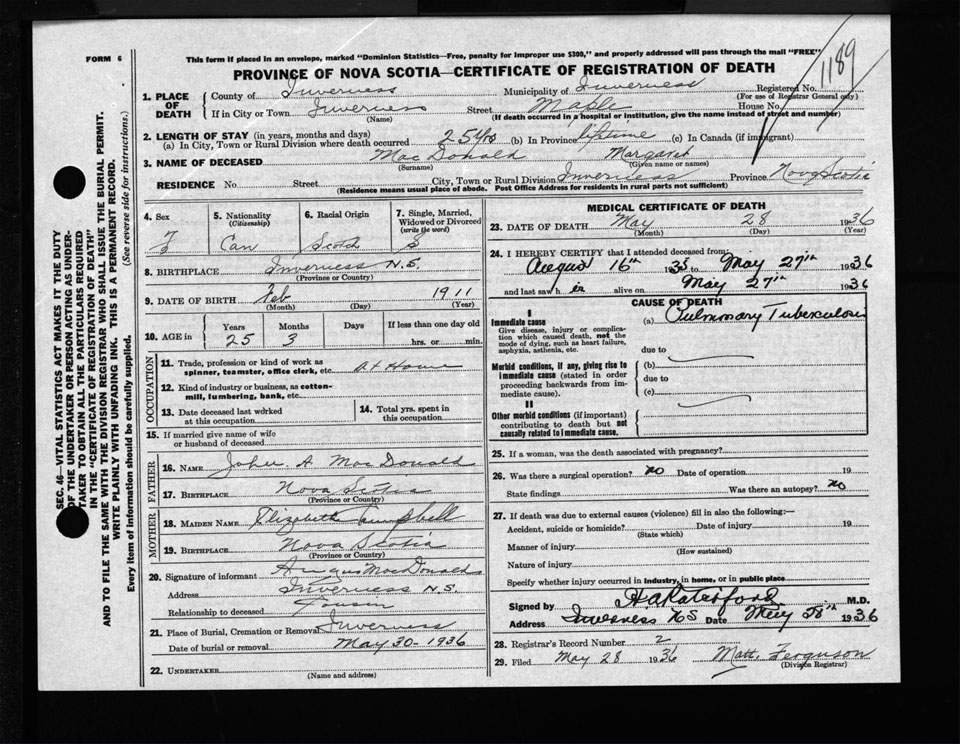 FORM 6
This form if placed in an envelope, marked "Dominion Statistics—Free, penalty for improper use $300," and properly addressed will pass through the mail "FREE"
PROVINCE OF NOVA SCOTIA—CERTIFICATE OF REGISTRATION OF DEATH
1189
1. PLACE OF DEATH
County of Inverness Municipality of Inverness Registered No.
(For use of Registrar General only)
If in City or Town Inverness Street Maple House No.
(Name) (If death occurred in a hospital or institution, give the name instead of street and number)
2. LENGTH OF STAY (in years, months and days)
(a) In City, Town or Rural Division where death occurred 25 yrs (b) In Province lifetime (c) In Canada (if immigrant)
3. NAME OF DECEASED MacDonald Margaret
(Surname) (Given name or names)
RESIDENCE No. Street City, Town or Rural Division Inverness Province Nova Scotia
(Residence means usual place of abode. Post Office Address for residents in rural parts not sufficient)
SEC. 46—VITAL STATISTICS ACT MAKES IT THE DUTY
OF THE UNDERTAKER OR PERSON ACTING AS UNDER-
TAKER TO OBTAIN ALL THE PARTICULARS REQUIRED
IN THE "CERTIFICATE OF REGISTRATION OF DEATH"
AND TO FILE THE SAME WITH THE DIVISION REGISTRAR WHO SHALL ISSUE THE BURIAL PERMIT.
WRITE PLAINLY WITH UNFADING INK. THIS IS A PERMANENT RECORD.
Every item of information should be carefully supplied. (See reverse side for instructions.)
4. Sex 5. Nationality (Citizenship) 6. Racial Origin 7. Single, Married, Widowed or Divorced (write the word)
F Can Scotch S
8. BIRTHPLACE Inverness N.S.
(Province or Country)
9. DATE OF BIRTH Feb 1911
(Month) (Day) (Year)
10. AGE in Years Months Days If less than one day old
25 3 hrs. or min.
OCCUPATION
11. Trade, profession or kind of work as
spinner, teamster, office clerk, etc. At Home
12. Kind of industry or business, as cotton-
mill, lumbering, bank, etc.
13. Date deceased last worked
at this occupation.
14. Total yrs. spent in
this occupation.
15. If married give name of wife
or husband of deceased
FATHER
16. NAME John A MacDonald
17. BIRTHPLACE Nova Scotia
(Province or Country)
MOTHER
18. MAIDEN NAME Elizabeth Campbell
19. BIRTHPLACE Nova Scotia
(Province or Country)
20. Signature of informant Angus MacDonald
Address Inverness N.S.
Relationship to deceased Cousin
21. Place of Burial, Cremation or Removal Inverness
Date of burial or removal May 30 - 1936
22. UNDERTAKER
(Name and address)
MEDICAL CERTIFICATE OF DEATH
23. DATE OF DEATH May 28 1936
(Month) (Day) (Year)
24. I HEREBY CERTIFY that I attended deceased from:
August 16th 1935 to May 27th 1936
and last saw h er alive on May 27th 1936
CAUSE OF DEATH
I
Immediate cause (a) Pulmonary Tuberculosis
Give disease, injury or complica-
tion which caused death, not the
mode of dying, such as heart failure,
asphyxia, asthenia, etc.
due to
Morbid conditions, if any, giving rise to
immediate cause (stated in order
proceeding backwards from im-
mediate cause).
(b)
due to
(c)
II
Other morbid conditions (if important)
contributing to death but not
causally related to immediate cause.
25. If a woman, was the death associated with pregnancy?
26. Was there a surgical operation? no Date of operation 19
State findings Was there an autopsy? no
27. If death was due to external causes (violence) fill in also the following:—
Accident, suicide or homicide? Date of injury 19
(State which)
Manner of injury
(How sustained)
Nature of injury
Specify whether injury occurred in industry, in home, or in public place
Signed by M.D.
Address Inverness NS Date May 28th 1936
28. Registrar's Record Number 2
29. Filed May 28 1936 Matt. Ferguson
(Division Registrar)